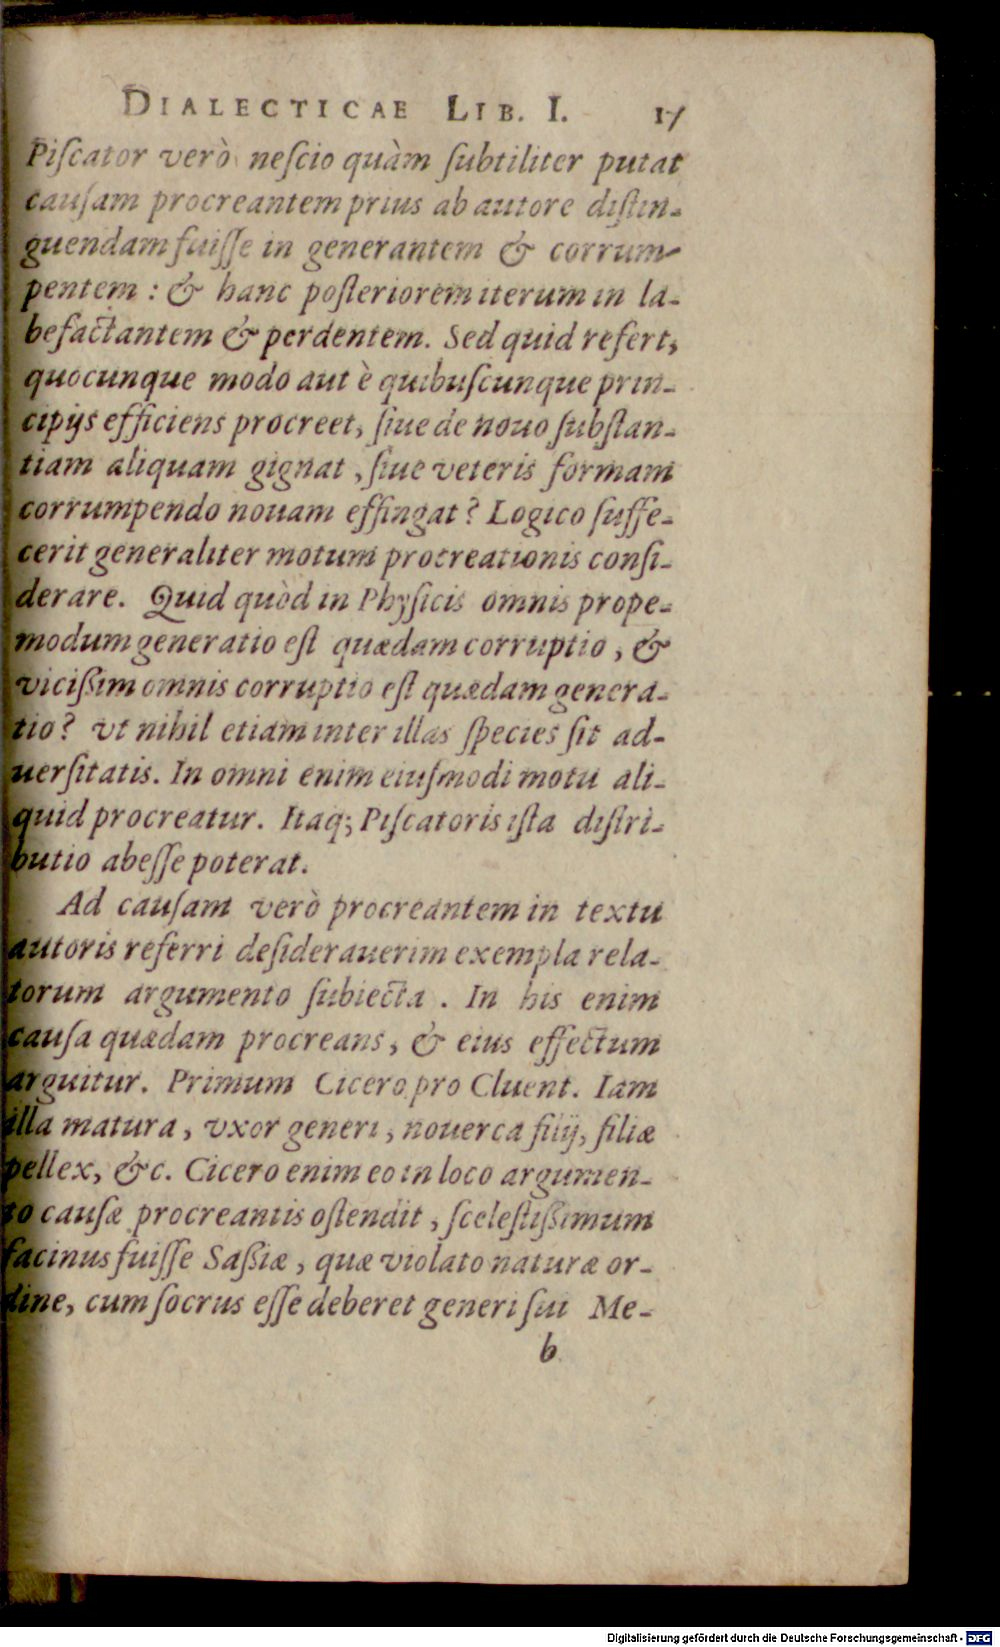 DIALECTICAE LIB. I. 17
Piſcator verò neſcio quàm ſubtiliter putat
cauſam procreantem prius ab autore diſtin-
guendam fuiſſe in generantem & corrum-
pentem : & hanc poſteriorem iterum in la-
befactantem & perdentem. Sed quid refert,
quocunque modo aut è quibuſcunque prin-
cipijs efficiens procreet, ſiue de nouo ſubſtan-
tiam aliquam gignat , ſiue veteris formam
corrumpendo nouam effingat? Logico ſuffe-
cerit generaliter motum procreationis conſi-
derare. Quid quòd in Phyſicis omnis prope-
modum generatio eſt quædam corruptio , &
vicißim omnis corruptio eſt quædam genera-
tio? vt nihil etiam inter illas ſpecies ſit ad-
uerſitatis. In omni enim eiuſmodi motu ali-
quid procreatur. Itaq; Piſcatoris iſta diſtri-
butio abeſſe poterat.
Ad cauſam verò procreantem in textu
autoris referri deſiderauerim exempla rela-
torum argumento ſubiecta . In his enim
cauſa quædam procreans, & eius effectum
arguitur. Primum Cicero pro Cluent. Iam
illa matura, vxor generi, nouerca filij, filiæ
pellex, &c. Cicero enim eo in loco argumen-
to cauſæ procreantis oſtendit, ſceleſtißimum
facinus fuiſſe Saßiæ, quæ violato naturæ or-
dine, cum ſocrus eſſe deberet generi ſui Me-
b
Digitalisierung gefördert durch die Deutsche Forschungsgemeinschaft - DFG